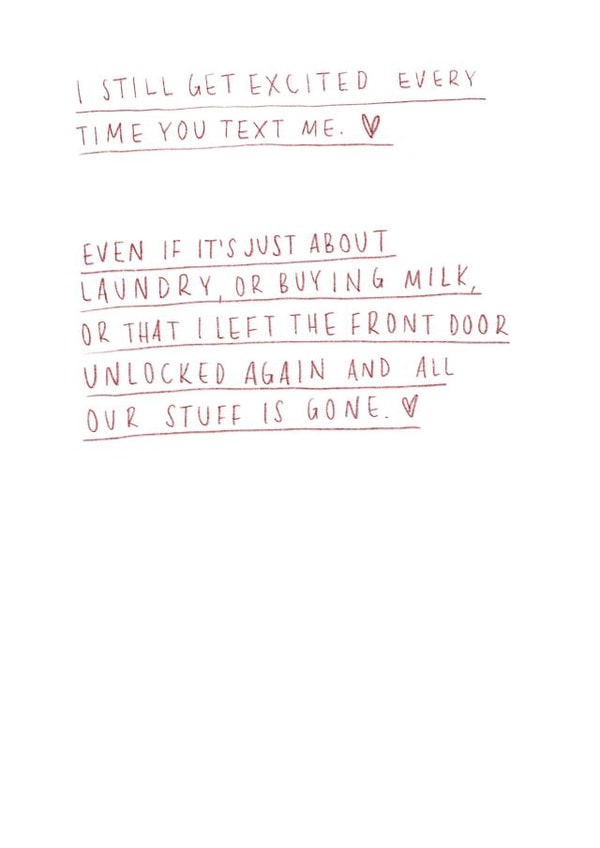 I STILL GET EXCITED EVERY
TIME YOU TEXT ME. ♥
EVEN IF IT'S JUST ABOUT
LAUNDRY, OR BUYING MILK,
OR THAT I LEFT THE FRONT DOOR
UNLOCKED AGAIN AND ALL
OUR STUFF IS GONE. ♥